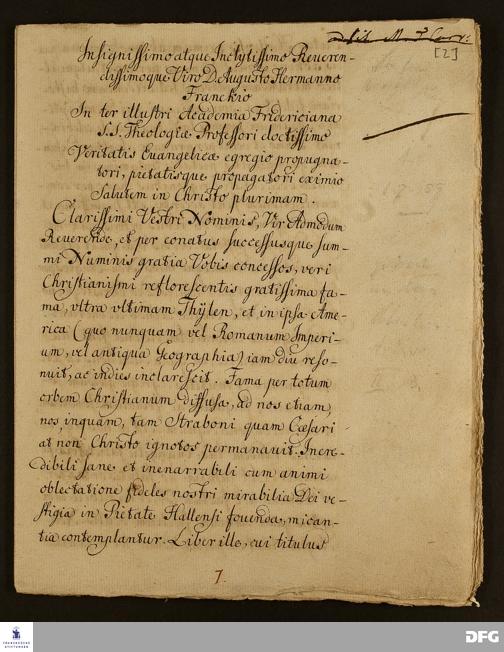 [2]
Insignissimo atque Inclytissimo Reueren-
dissimoque Viro D. Augusto Hermanno
Franckio
In ter illustri Academia Fridericiana
S.S. Theologiæ Professori doctissimo
Veritatis Euangelicæ egregio propugna-
tori, pietatisque propagatori eximio
Salutem in Christo plurimam.
Clarissimi Vestri Nominis, Vir Admodum
Reuerende, et per conatus successusque sum-
mi Numinis gratia Vobis concessos, veri
Christianismi reflorescentis gratissima fa-
ma, vltra vltimam Thÿlen, et in ipsa Ame-
rica (quo nunquam vel Romanum Imperi-
um, vel antiqua Geographia) iam diu reso-
nuit, ac indies inclarescit. Fama per totum
orbem Christianum diffusa, ad nos etiam,
nos inquam, tam Straboni quam Cæsari
at non Christo ignotos permanauit. Incre-
dibili sane et inenarrabili cum animi
oblectatione fideles nostri mirabilia Dei ve-
stigia in Pietate Hallensi fouenda, mican-
tia contemplantur. Liber ille, cui titulus
7.
FRANCKESCHE
STIFTUNGEN
DFG